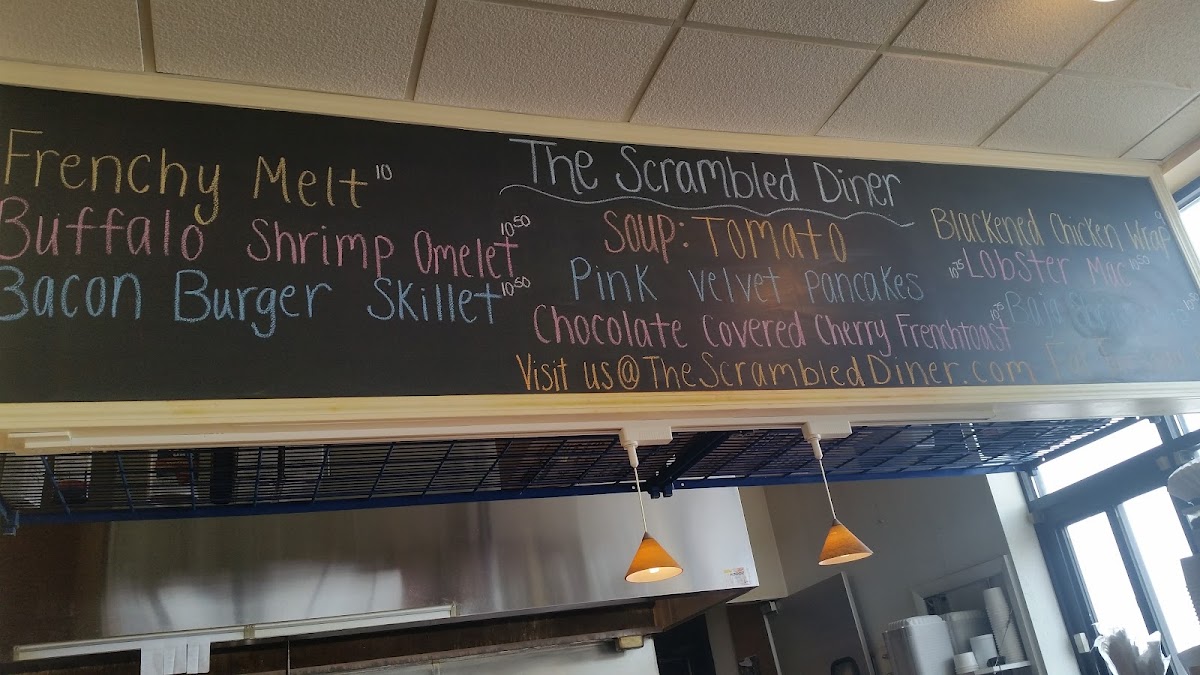 Frenchy Melt 10
Buffalo Shrimp Omelet 10.50
Bacon Burger Skillet 10.50
The Scrambled Diner
Soup: Tomato
Pink Velvet Pancakes 10.75
Chocolate Covered Cherry Frenchtoast 10.75
Visit us@TheScrambledDiner.com
Blackened Chicken Wrap 9
Lobster Mac 10.50
Baja